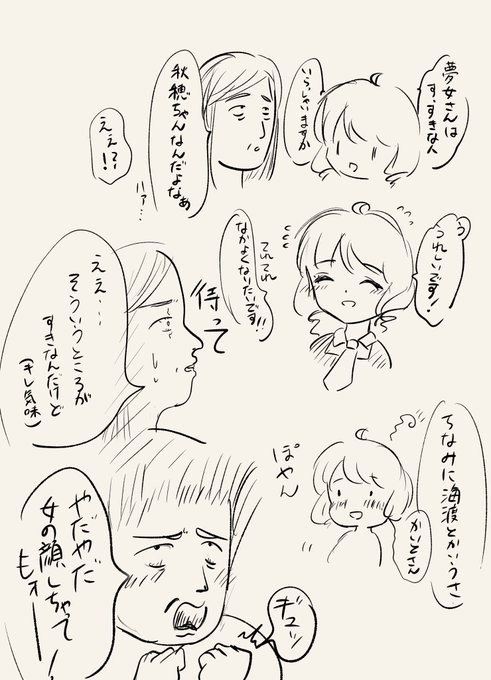 夢女さんは
す、すきな人
いらっしゃいますか
秋穂ちゃんなんだよなぁ
ええ??!
う、
うれしいです!
てれてれ
なかよくないたいです!!
待って
ええ・・・
そういうところが
すきなんだけど
(キレ気味)
ちなみに海渡とかいうさ
かいとさん
ぽやん
やだやだ
女の顔しちゃって
もォーー!
ギュッ